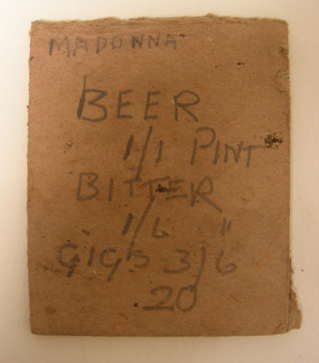 MADONNA
BEER
1/1 PINT
BITTER
1/6 "
GIGS 3/6
20